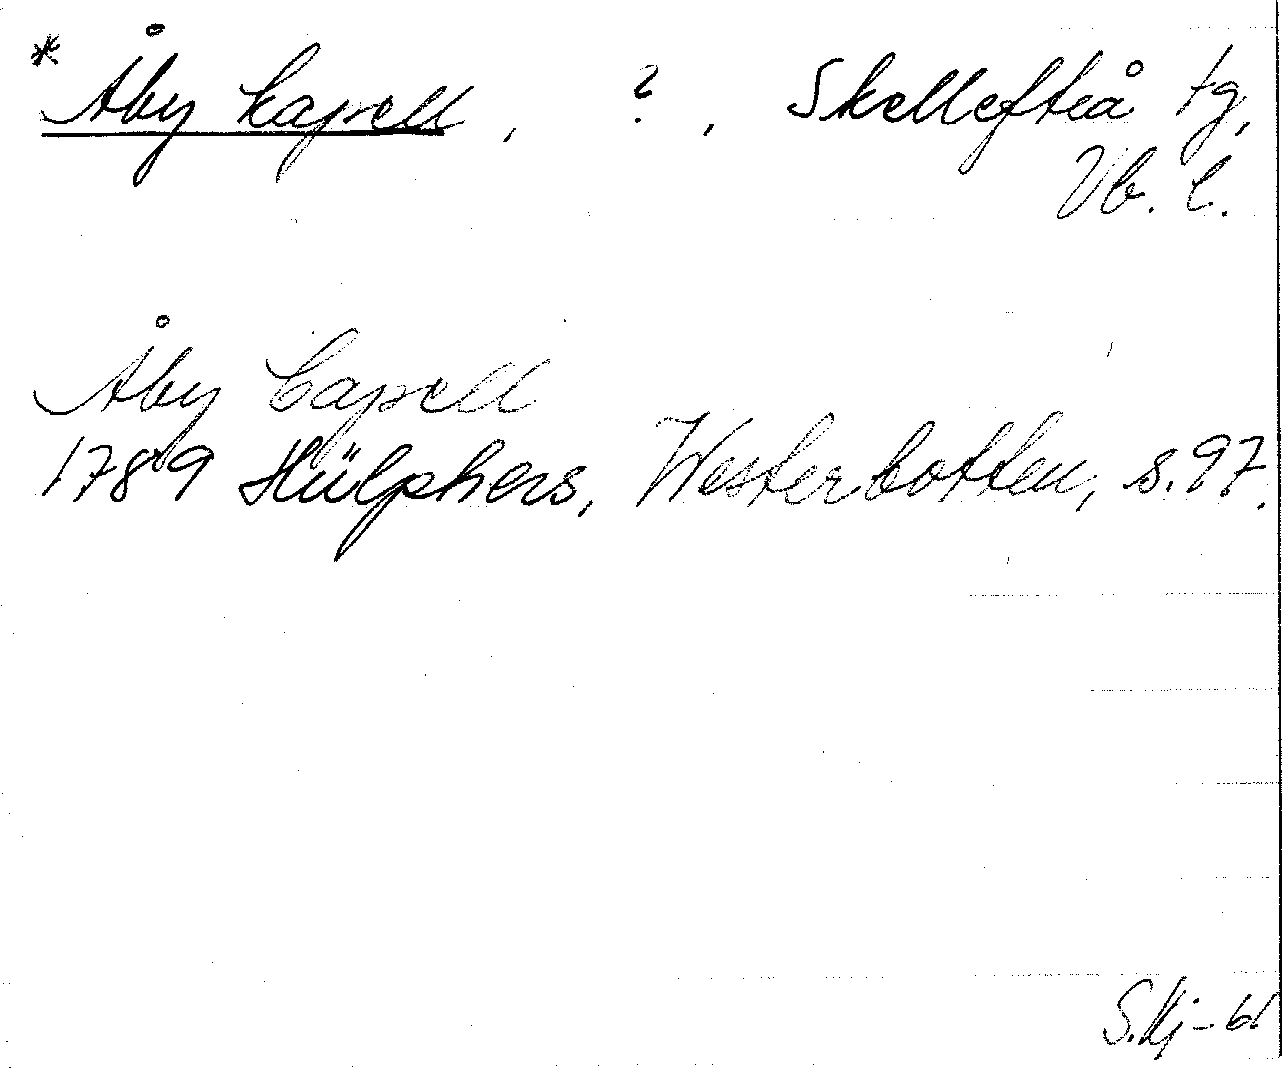 * Åby kapell, ?, Skellefteå tg,
Vb. l.
Åby Capell
1789 Hülphers, Westerbotten, s.97.
S.Kj-61